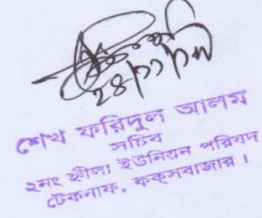 ২৪/১১/১৮
শেখ ফরিদুল আলম
সচিব
২নং হ্নীলা ইউনিয়ন পরিষদ
টেকনাফ, কক্সবাজার।